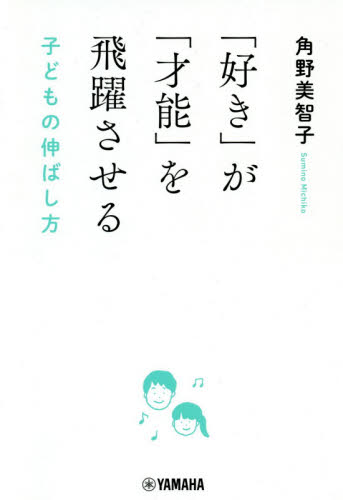 角野美智子
Sumino Michiko
「好き」が
「才能」を
飛躍させる
子どもの伸ばし方
YAMAHA